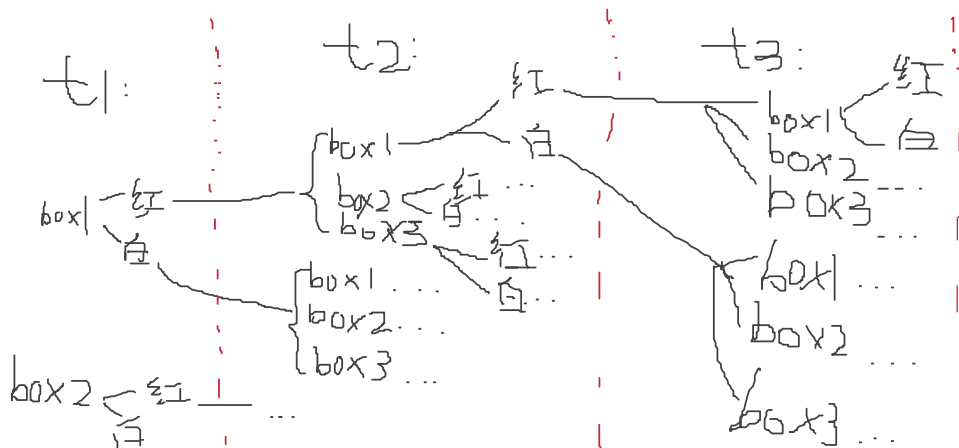 t1:
t2:
t3:
box1
红
白
box2
红
白
...
box1
红
白
box2
红
...
白
...
box3
红
...
白
...
box1
...
box2
...
box3
...
box1
红
白
box2
...
box3
...
box1
...
box2
...
box3
...